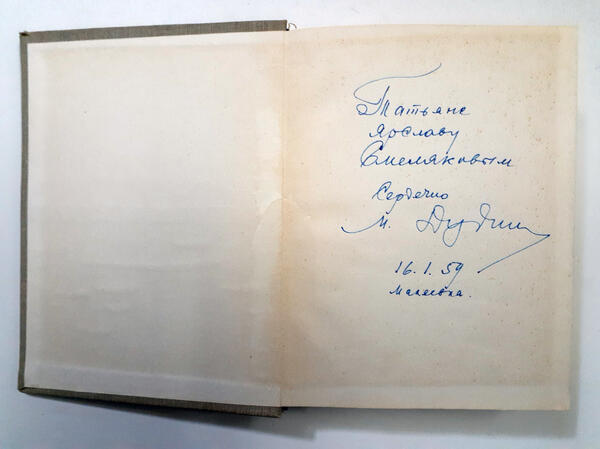 Татьяне
Ярославу
Смеляковым
Сердечно
М. Дудин
16.1.59
Малеевка.